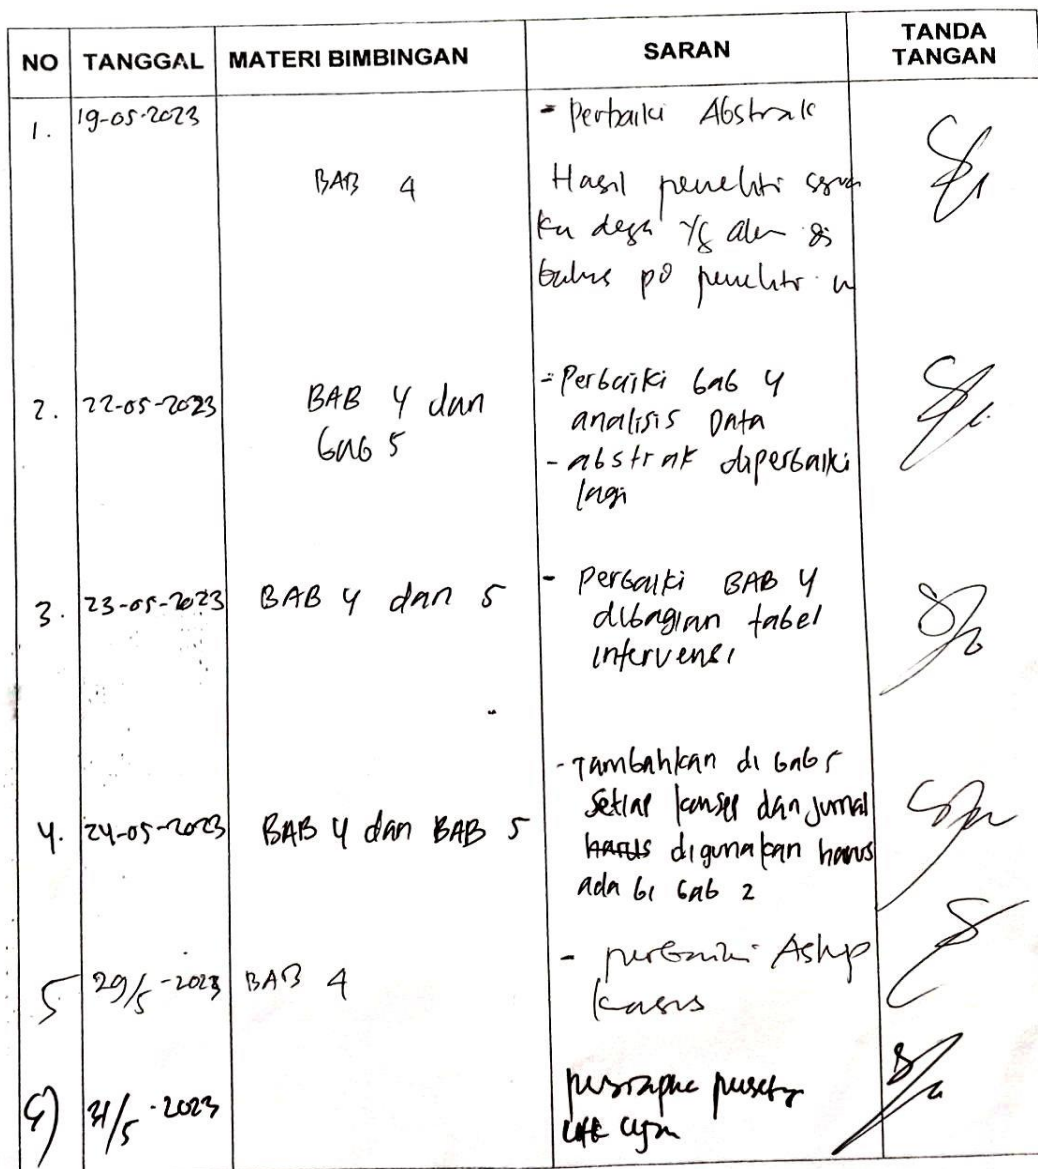 NO TANGGAL MATERI BIMBINGAN SARAN TANDA TANGAN
1. 19-05-2023 BAB 4 - Perbaiki Abstrak
Hasil peneliti
yg
2. 22-05-2023 BAB 4 dan bab 5 - Perbaiki bab 4
analisis Data
- abstrak diperbaiki
lagi
3. 23-05-2023 BAB 4 dan 5 - Perbaiki BAB 4
dibagian tabel
intervensi
4. 24-05-2023 BAB 4 dan BAB 5 - Tambahkan di bab 5
setiap konsep dan jurnal
harus digunakan harus
ada bi bab 2
5 29/5-2023 BAB 4 - perbaiki Askep
kasus
31/5-2023